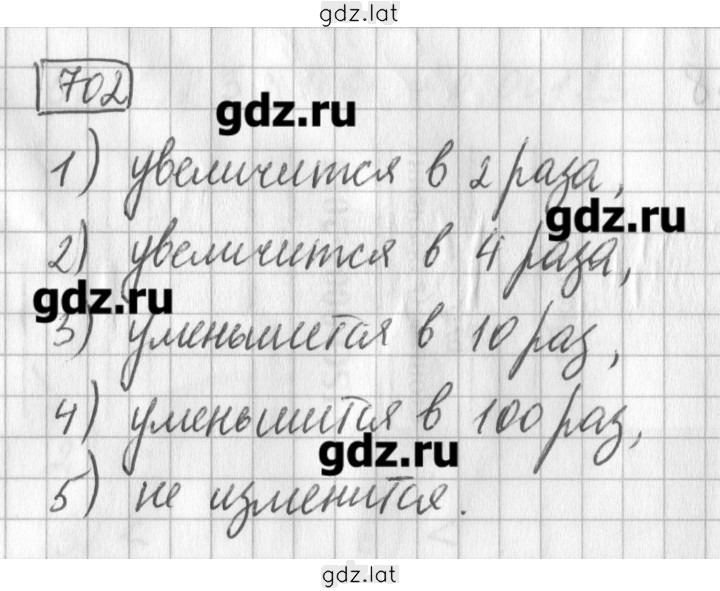 gdz.lat
702
gdz.ru
1) увеличится в 2 раза,
gdz.ru
2) увеличится в 4 раза,
gdz.ru
3) уменьшится в 10 раз,
4) уменьшится в 100 раз,
gdz.ru
5) не изменится.
gdz.lat